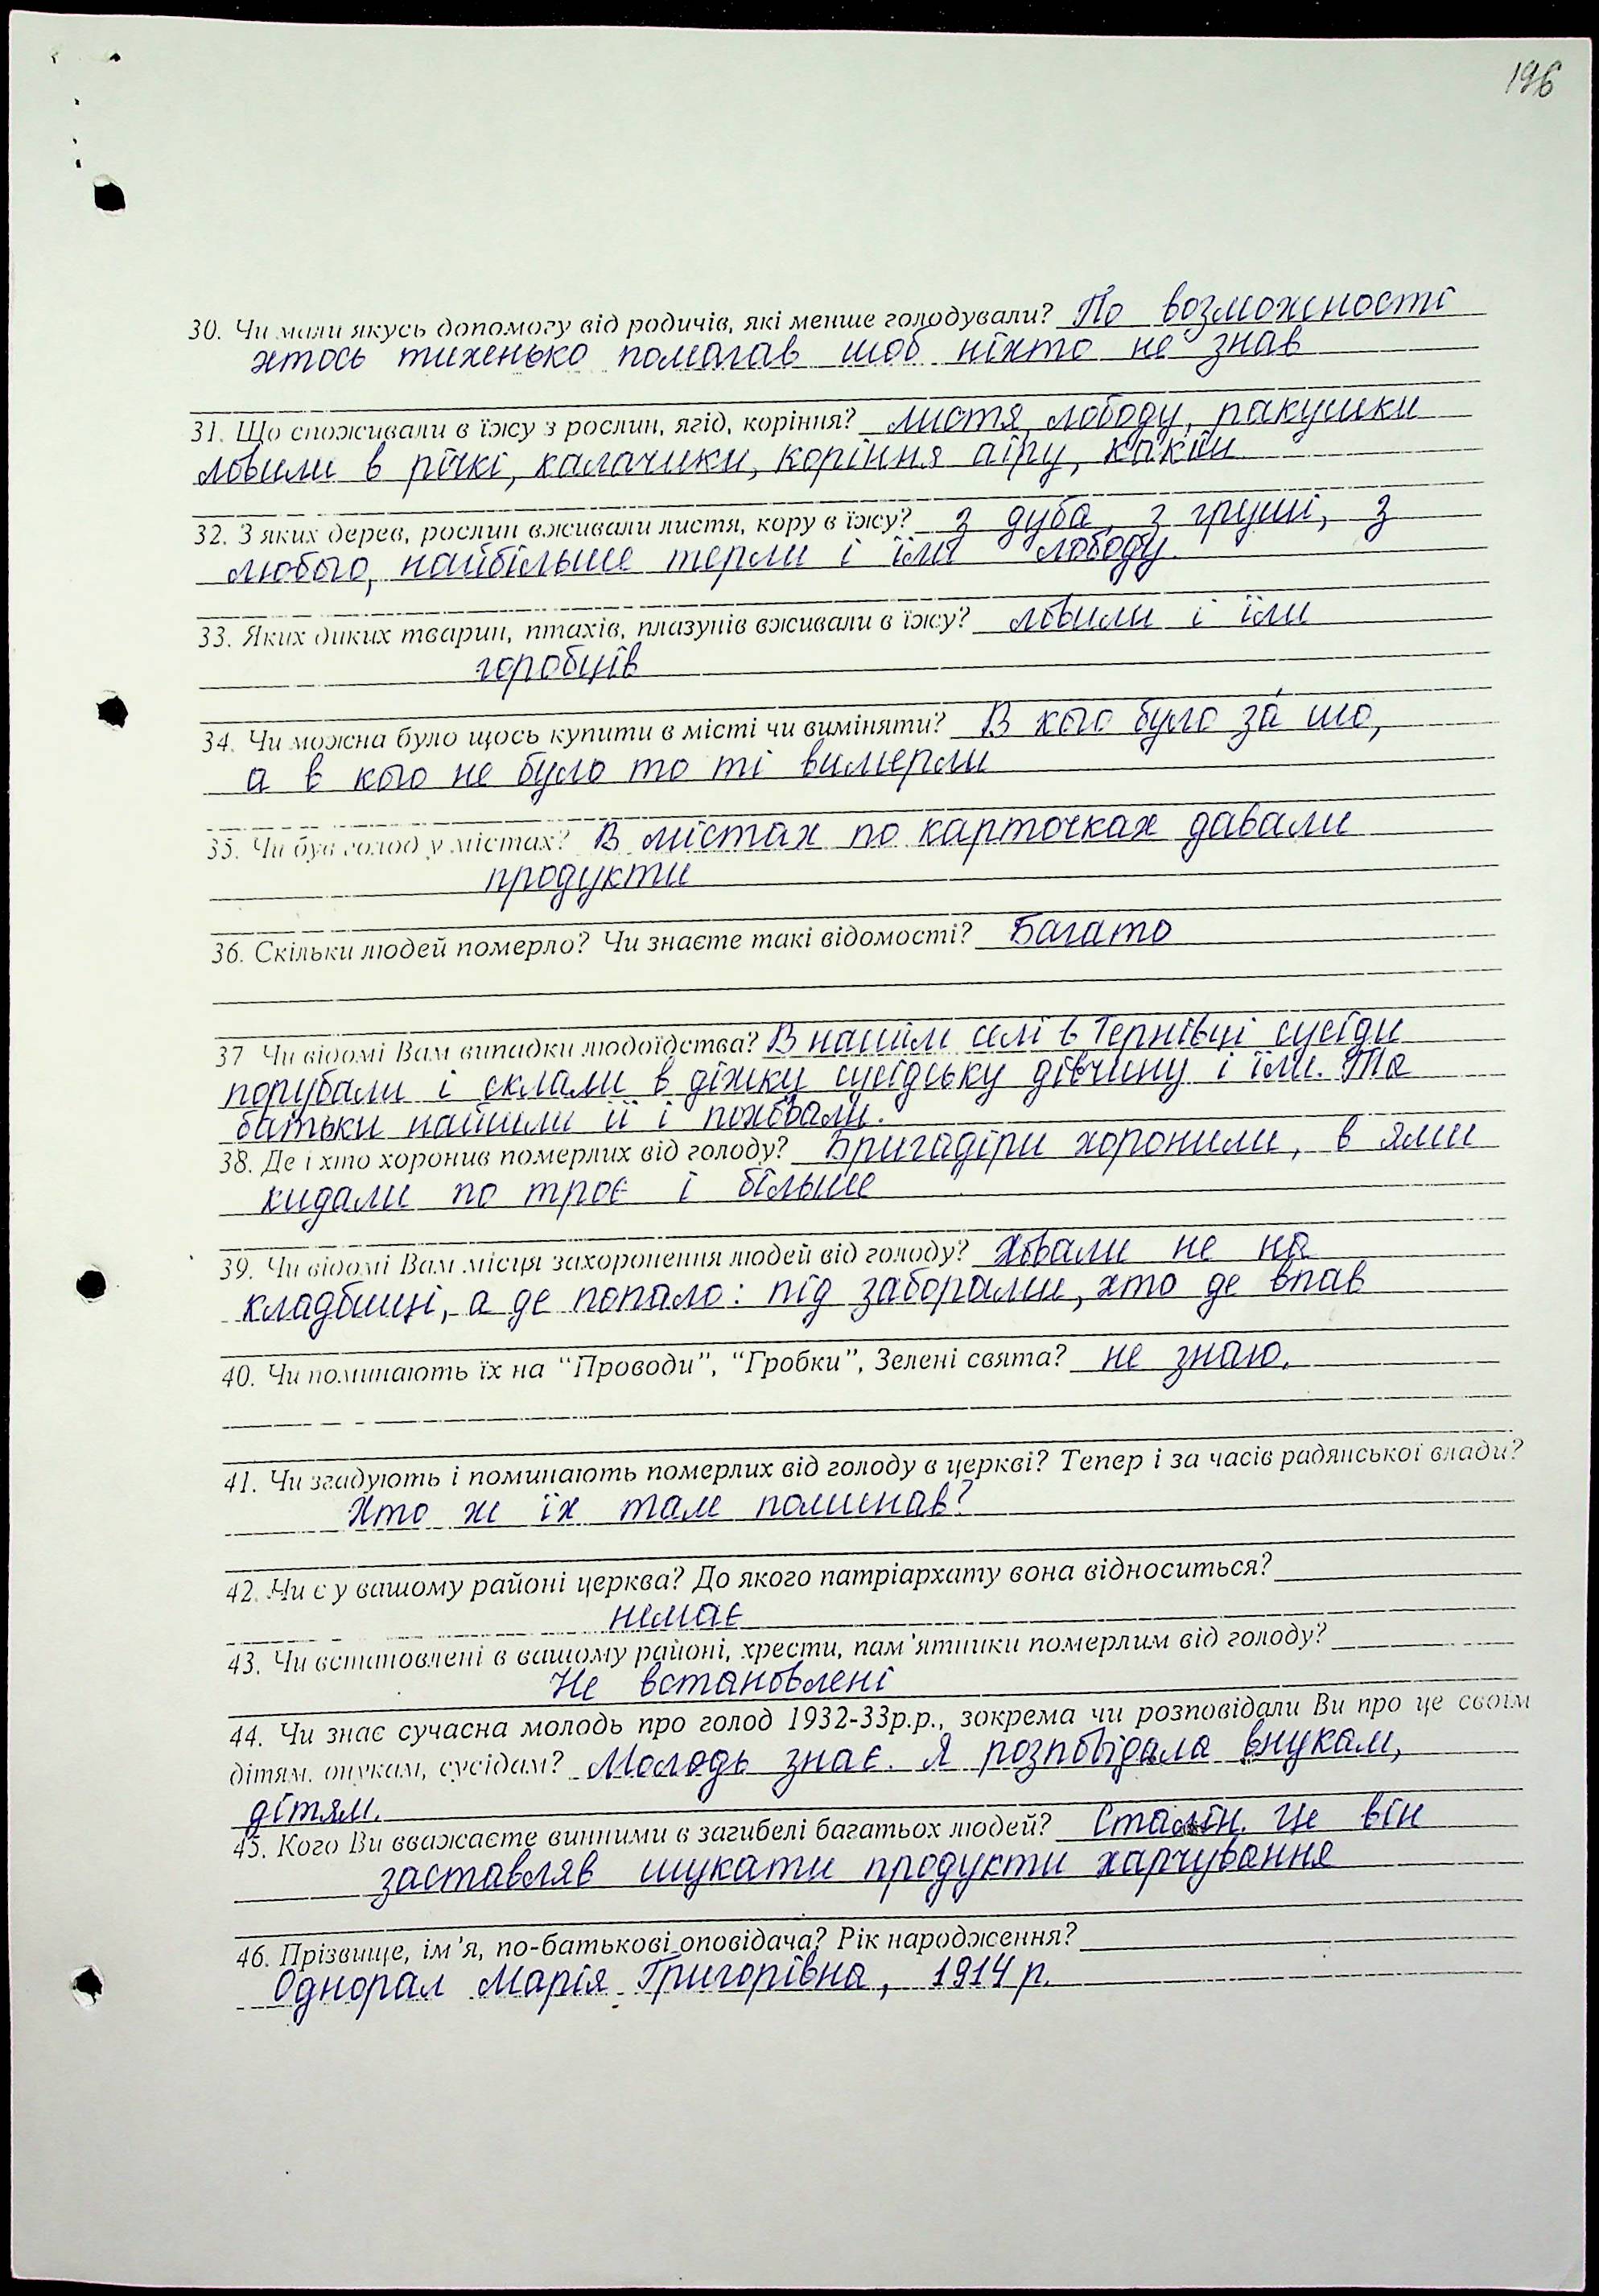 196
30. Чи мали якусь допомогу від родичів, які менше голодували? По возможності
хтось тихенько помагав щоб ніхто не знав
31. Що споживали в їжу з рослин, ягід, коріння? листя, лободу, ракушки
ловили в річкі, калачики, коріння аїру, какіш
32. З яких дерев, рослин вживали листя, кору в їжу? з дуба, з груші, з
любого, найбільше терли і їли лободу.
33. Яких диких тварин, птахів, плазунів вживали в їжу? ловили і їли
горобців
34. Чи можна було щось купити в місті чи виміняти? В кого було за́ шо,
а в кого не було то ті вимерли
35. Чи був голод у містах? В містах по карточках давали
продукти
36. Скільки людей померло? Чи знаєте такі відомості? Багато
37. Чи відомі Вам випадки людоїдства? В нашім селі в Тернівці сусіди
порубали і склали в діжку сусідську дівчину і їли. Та
батьки найшли її і поховали.
38. Де і хто хоронив померлих від голоду? Бригадіри хоронили, в ями
кидали по троє і більше
39. Чи відомі Вам місця захоронення людей від голоду? Ховали не на
кладбищі, а де попало: під заборами, хто де впав
40. Чи поминають їх на “Проводи”, “Гробки”, Зелені свята? не знаю.
41. Чи згадують і поминають померлих від голоду в церкві? Тепер і за часів радянської влади?
Хто ж їх там поминав?
42. Чи є у вашому районі церква? До якого патріархату вона відноситься?
немає
43. Чи встановлені в вашому районі, хрести, пам’ятники померлим від голоду?
Не встановлені
44. Чи знає сучасна молодь про голод 1932-33р.р., зокрема чи розповідали Ви про це своїм
дітям, онукам, сусідам? Молодь знає. Я розповідала внукам,
дітям.
45. Кого Ви вважаєте винними в загибелі багатьох людей? Сталін. Це він
заставляв шукати продукти харчування
46. Прізвище, ім’я, по-батькові оповідача? Рік народження?
Однорал Марія Григорівна, 1914 р.